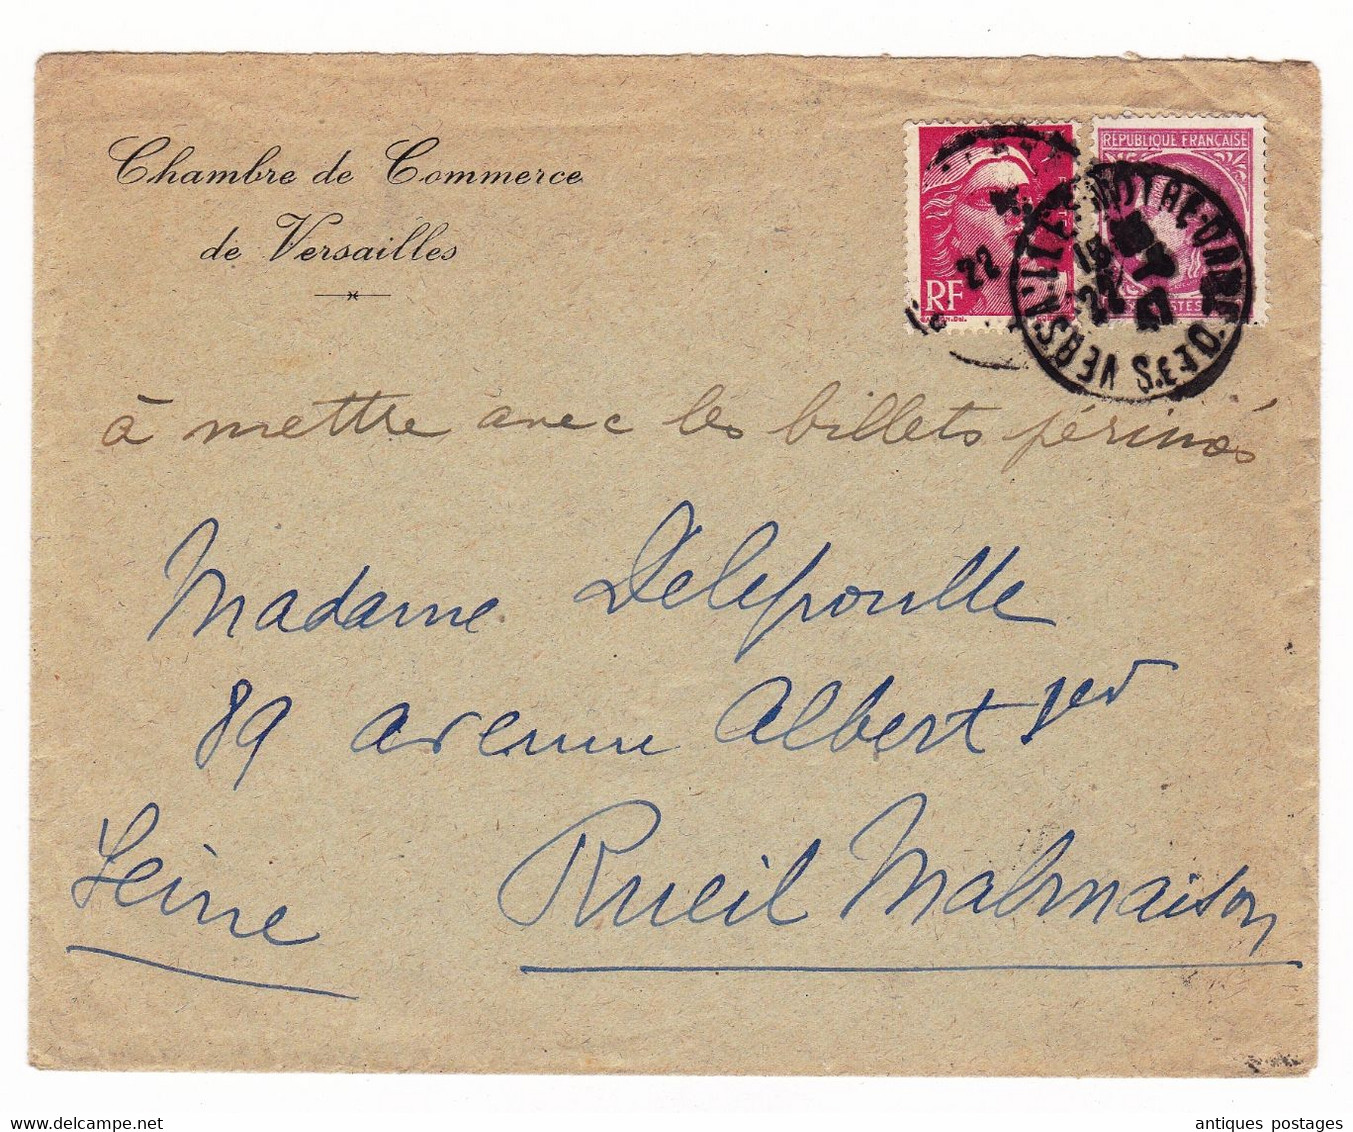 Chambre de Commerce
de Versailles
RF
RÉPUBLIQUE FRANÇAISE
VERSAILLES NOTRE-DAME
S.ET.O.
22
22
47
à mettre avec les billets périmés
Madame Delepoulle
89 avenue Albert 1er
Seine Rueil Malmaison
antiques postages